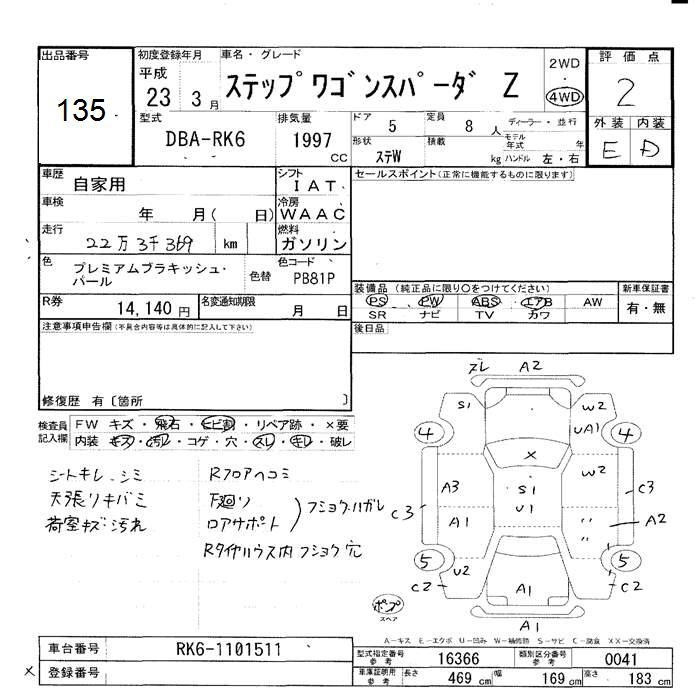 出品番号
135
初度登録年月
平成
23 3月
車名・グレード
ステップワゴンスパーダ Z
2WD
・
4WD
評価点
2
外装 内装
E D
型式
DBA-RK6
排気量
1997
CC
ドア
5
定員
8 人
ディーラー・並行
形状
ステW
積載
kg
モデル年式 年
ハンドル 左・右
車歴
自家用
シフト
IAT
車検
年 月( 日)
冷房
WAAC
走行
22万3千369 km
燃料
ガソリン
色
プレミアムブラキッシュ・パール
色替
色コード
PB81P
R券
14,140円
名変通知期限
月 日
セールスポイント(正常に機能するものに限ります)
装備品(純正品に限り○をつけてください)
PS PW ABS エアB AW
SR ナビ TV カワ
新車保証書
有・無
後日品
注意事項申告欄(不具合内容等は具体的に記入して下さい)
修復歴 有〔箇所 〕
検査員記入欄
FW キズ・飛石・ヒビ割・リペア跡・×要
内装 キズ・汚レ・コゲ・穴・スレ・キレ・破レ
シートキレ、シミ
天張リキバミ
荷室キズ・汚れ
Rフロアヘコミ
下廻り
ロアサポート
フショク・ハガレ
Rタイヤハウス内フショク穴
ズレ A2
S1 W2
UA1
4 4
X
A3 S1 W2
U1
C3 C3
A1 〃 A2
〃
5 5
U2
C2 A1 C2
A1
ポンプ
スペア
A-キズ E-エクボ U-凹み W-補修跡 S-サビ C-腐食 XX-交換済
車台番号
RK6-1101511
登録番号
×
型式指定番号
参考
16366
類別区分番号
参考
0041
車庫証明用
参考
長さ 469 cm
幅 169 cm
高さ 183 cm